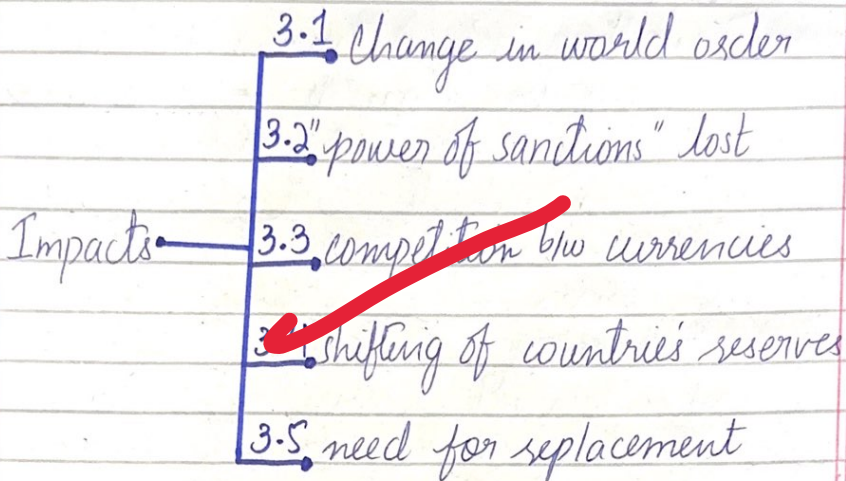 3.1 Change in world order
3.2 "power of sanctions" lost
Impacts
3.3 competition b/w currencies
3.4 shifting of countrie's reserves
3.5 need for replacement